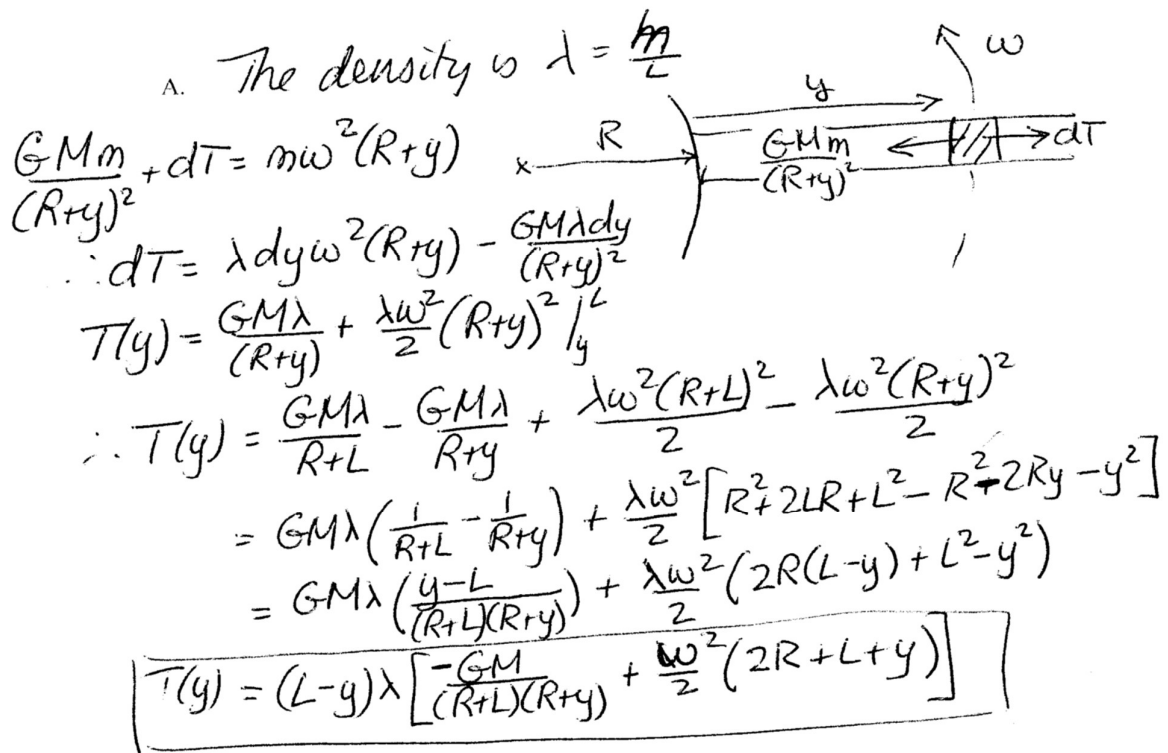 A. The density is λ = m/L
ω
y
R
GMm/(R+y)²
dT
GMm/(R+y)² + dT = mω²(R+y)
∴ dT = λdyω²(R+y) - GMλdy/(R+y)²
T(y) = GMλ/(R+y) + λω²/2 (R+y)² |_y^L
∴ T(y) = GMλ/R+L - GMλ/R+y + λω²(R+L)²/2 - λω²(R+y)²/2
= GMλ(1/R+L - 1/R+y) + λω²/2 [R²+2LR+L²-R²-2Ry-y²]
= GMλ(y-L/(R+L)(R+y)) + λω²/2 (2R(L-y)+L²-y²)
T(y) = (L-y)λ[-GM/(R+L)(R+y) + ω²/2 (2R+L+y)]